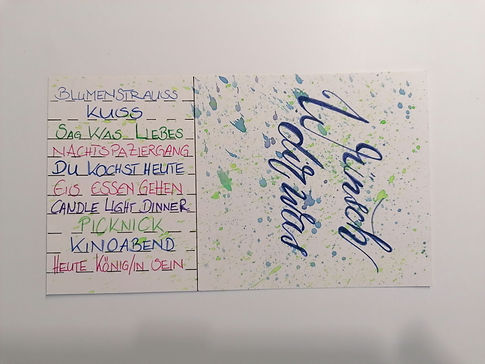 BLUMENSTRAUSS
KUSS
SAG WAS LIEBES
NACHTSPAZIERGANG
DU KOCHST HEUTE
EIS ESSEN GEHEN
CANDLE LIGHT DINNER
PICKNICK
KINOABEND
HEUTE KÖNIG/IN SEIN
Wünsch
dir was